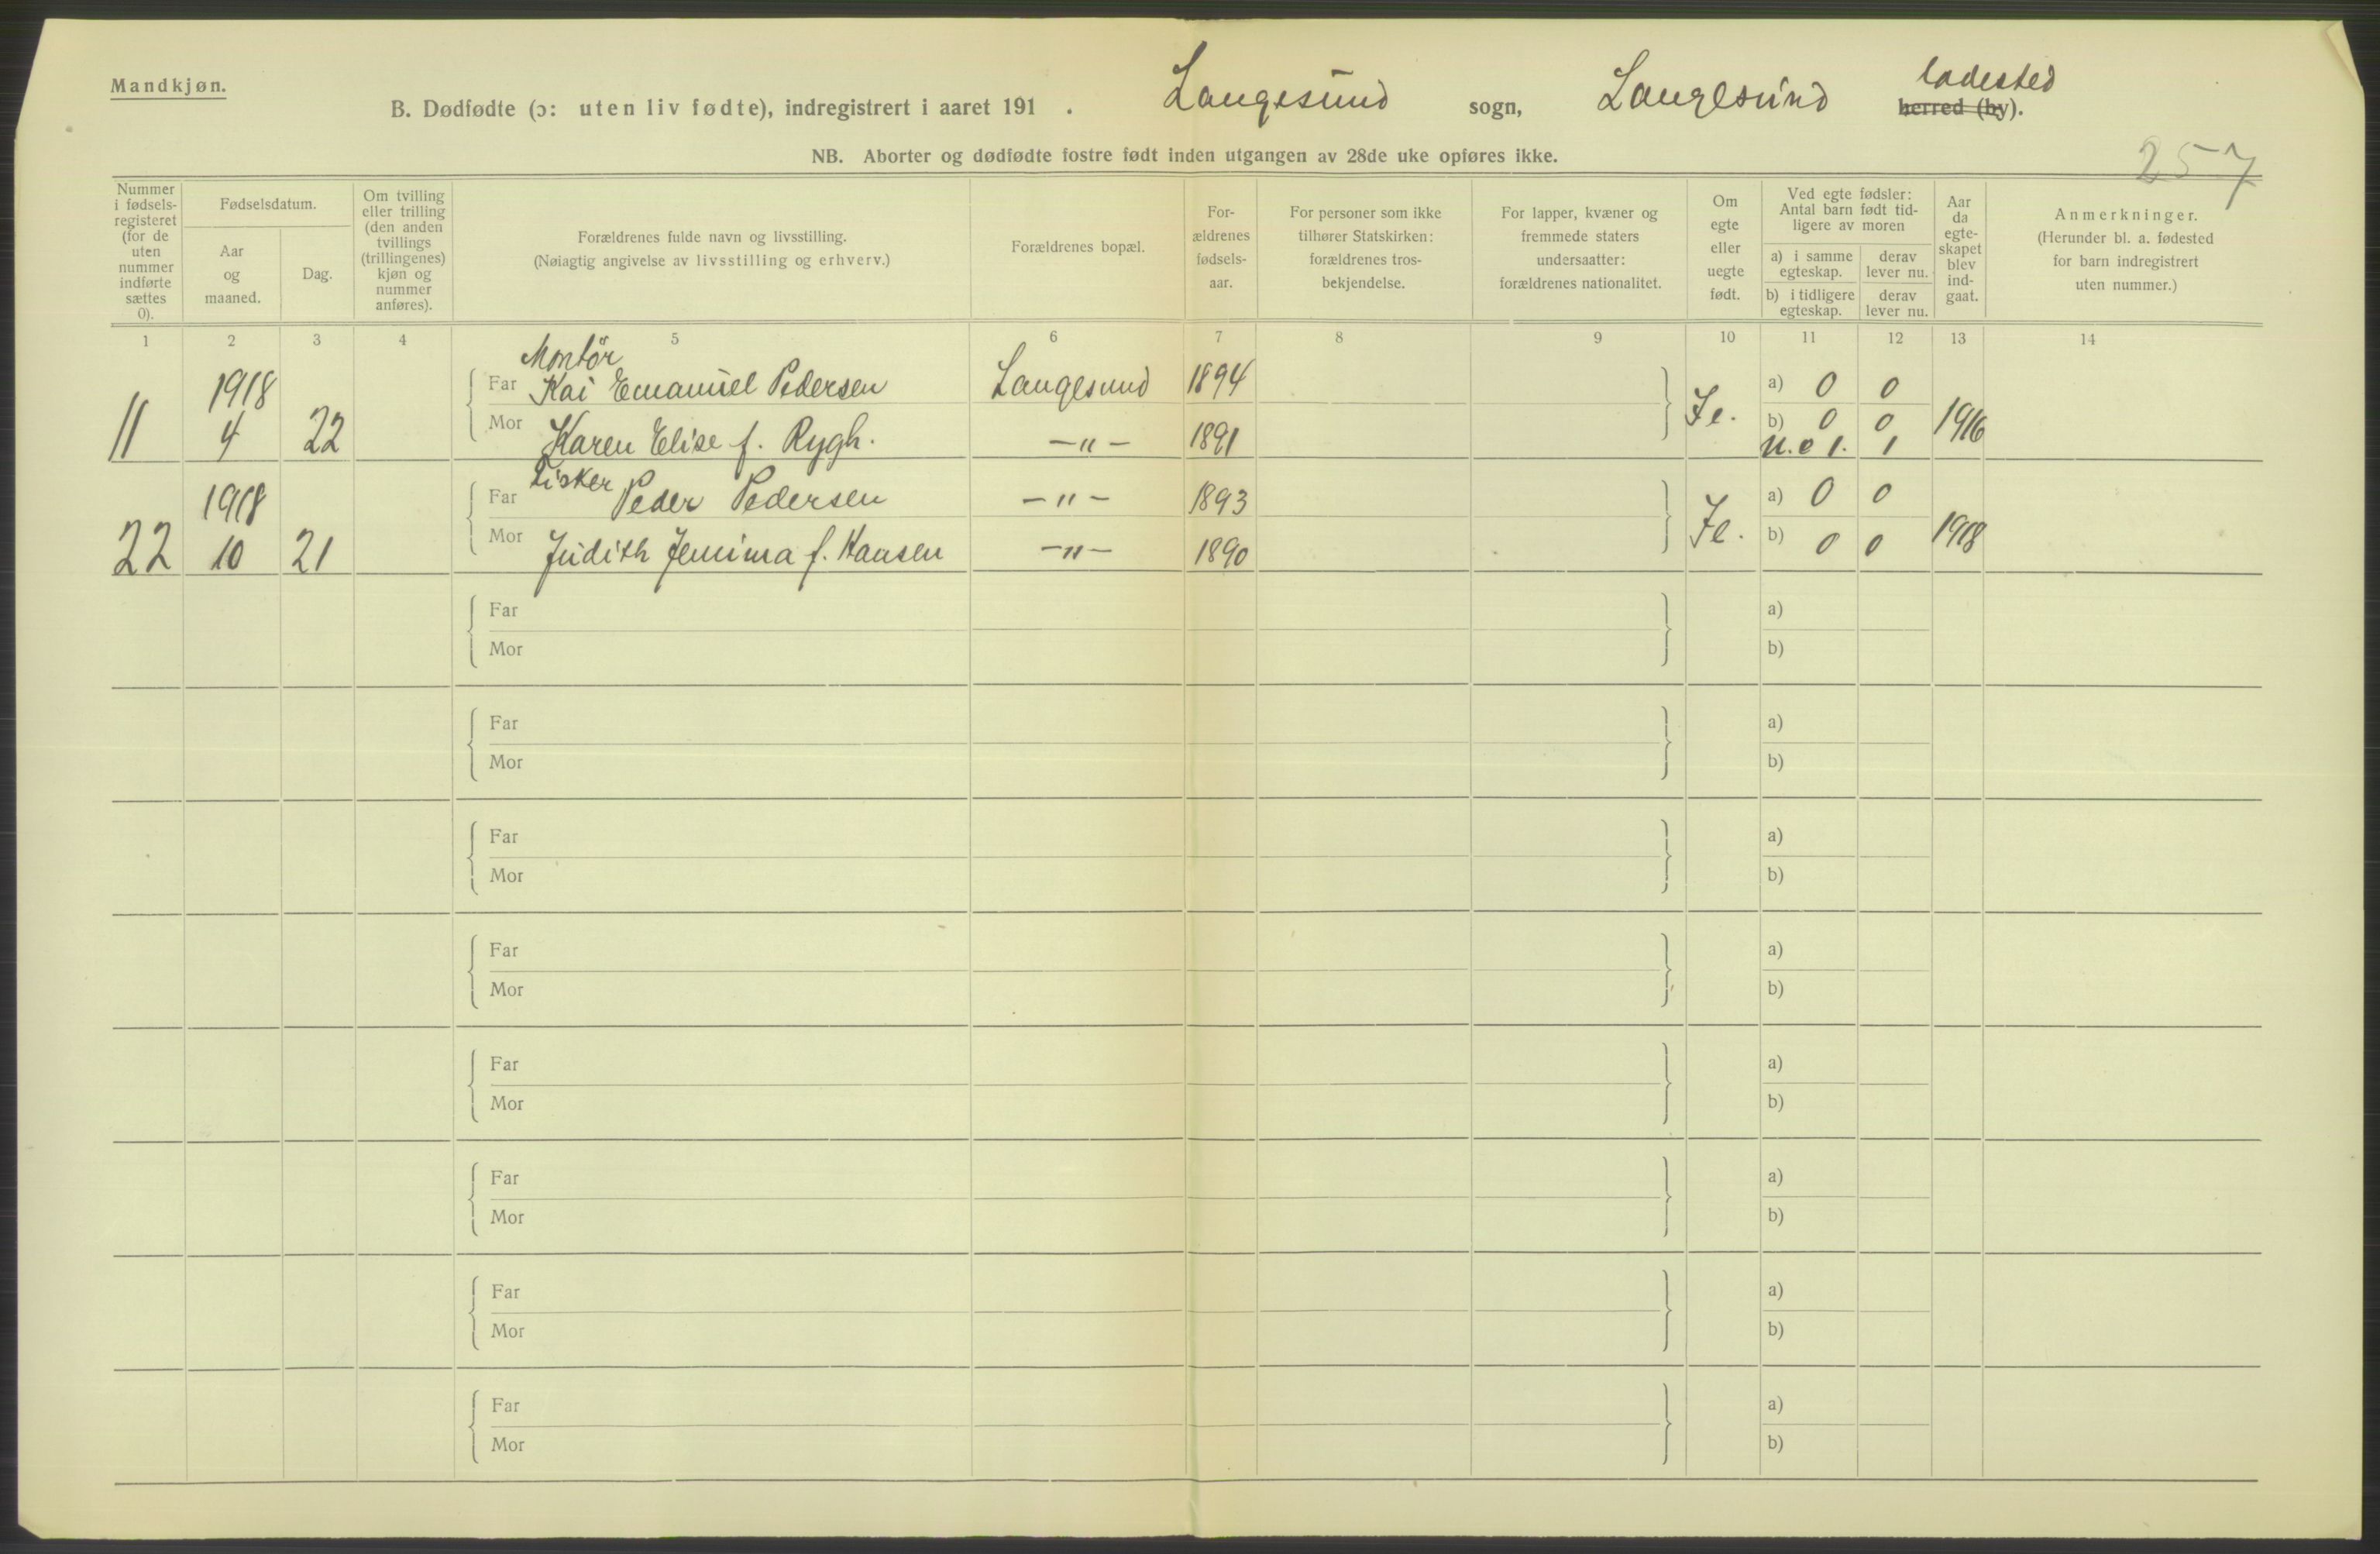 Mandkjøn.
B. Dødfødte (ɔ: uten liv fødte), indregistrert i aaret 191 . Langesund sogn, Langesund ladested herred (by).
NB. Aborter og dødfødte fostre født inden utgangen av 28de uke opføres ikke.
257
Nummer i fødsels-registeret (for de uten nummer indførte sættes 0).
Fødselsdatum.
Aar og maaned.
Dag.
Om tvilling eller trilling (den anden tvillings (trillingenes) kjøn og nummer anføres).
Forældrenes fulde navn og livsstilling.
(Nøiagtig angivelse av livsstilling og erhverv.)
Forældrenes bopæl.
For-ældrenes fødsels-aar.
For personer som ikke tilhører Statskirken: forældrenes tros-bekjendelse.
For lapper, kvæner og fremmede staters undersaatter: forældrenes nationalitet.
Om egte eller uegte født.
Ved egte fødsler: Antal barn født tid-ligere av moren
a) i samme egteskap.
derav lever nu.
b) i tidligere egteskap.
derav lever nu.
Aar da egte-skapet blev ind-gaat.
Anmerkninger.
(Herunder bl. a. fødested for barn indregistrert uten nummer.)
1 2 3 4 5 6 7 8 9 10 11 12 13 14
Montör
1918 Far Kai Emanuel Pedersen Langesund 1894 a) 0 0
11 4 22 Mor Karen Elise f. Rygh. —"— 1891 Je. b) 0 0 1916
u. e 1. 1
Fisker
1918 Far Peder Pedersen —"— 1893 a) 0 0
22 10 21 Mor Judith Jemima f. Hansen —"— 1890 Je. b) 0 0 1918
Far a)
Mor b)
Far a)
Mor b)
Far a)
Mor b)
Far a)
Mor b)
Far a)
Mor b)
Far a)
Mor b)
Far a)
Mor b)
Far a)
Mor b)